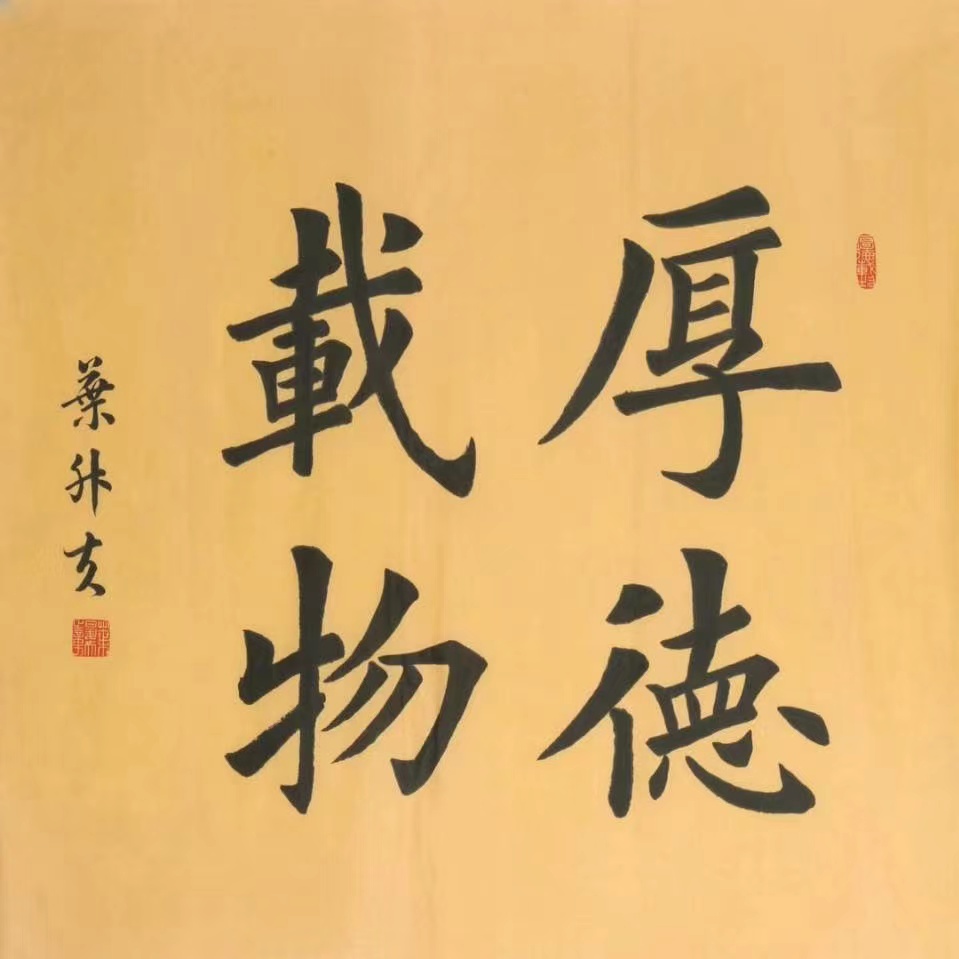 厚德
載物
葉升友